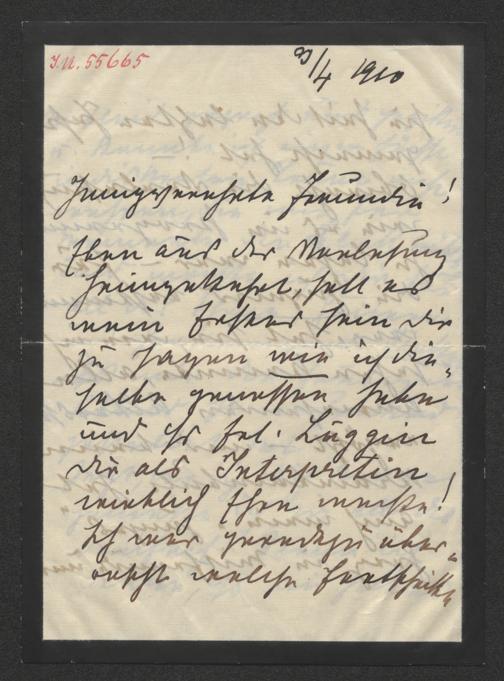 J.N. 55665
8/4 1910
Innigverehrte Freundin!
Eben aus der Vorlesung
heimgekehrt, soll es
mein Erstes sein dir
zu sagen wie ich die-
selbe genossen habe
und Frl. Luggin
dir als Interpretin
wirklich Ehre machte!
Ich war geradezu über-
rascht welche Fortschritte